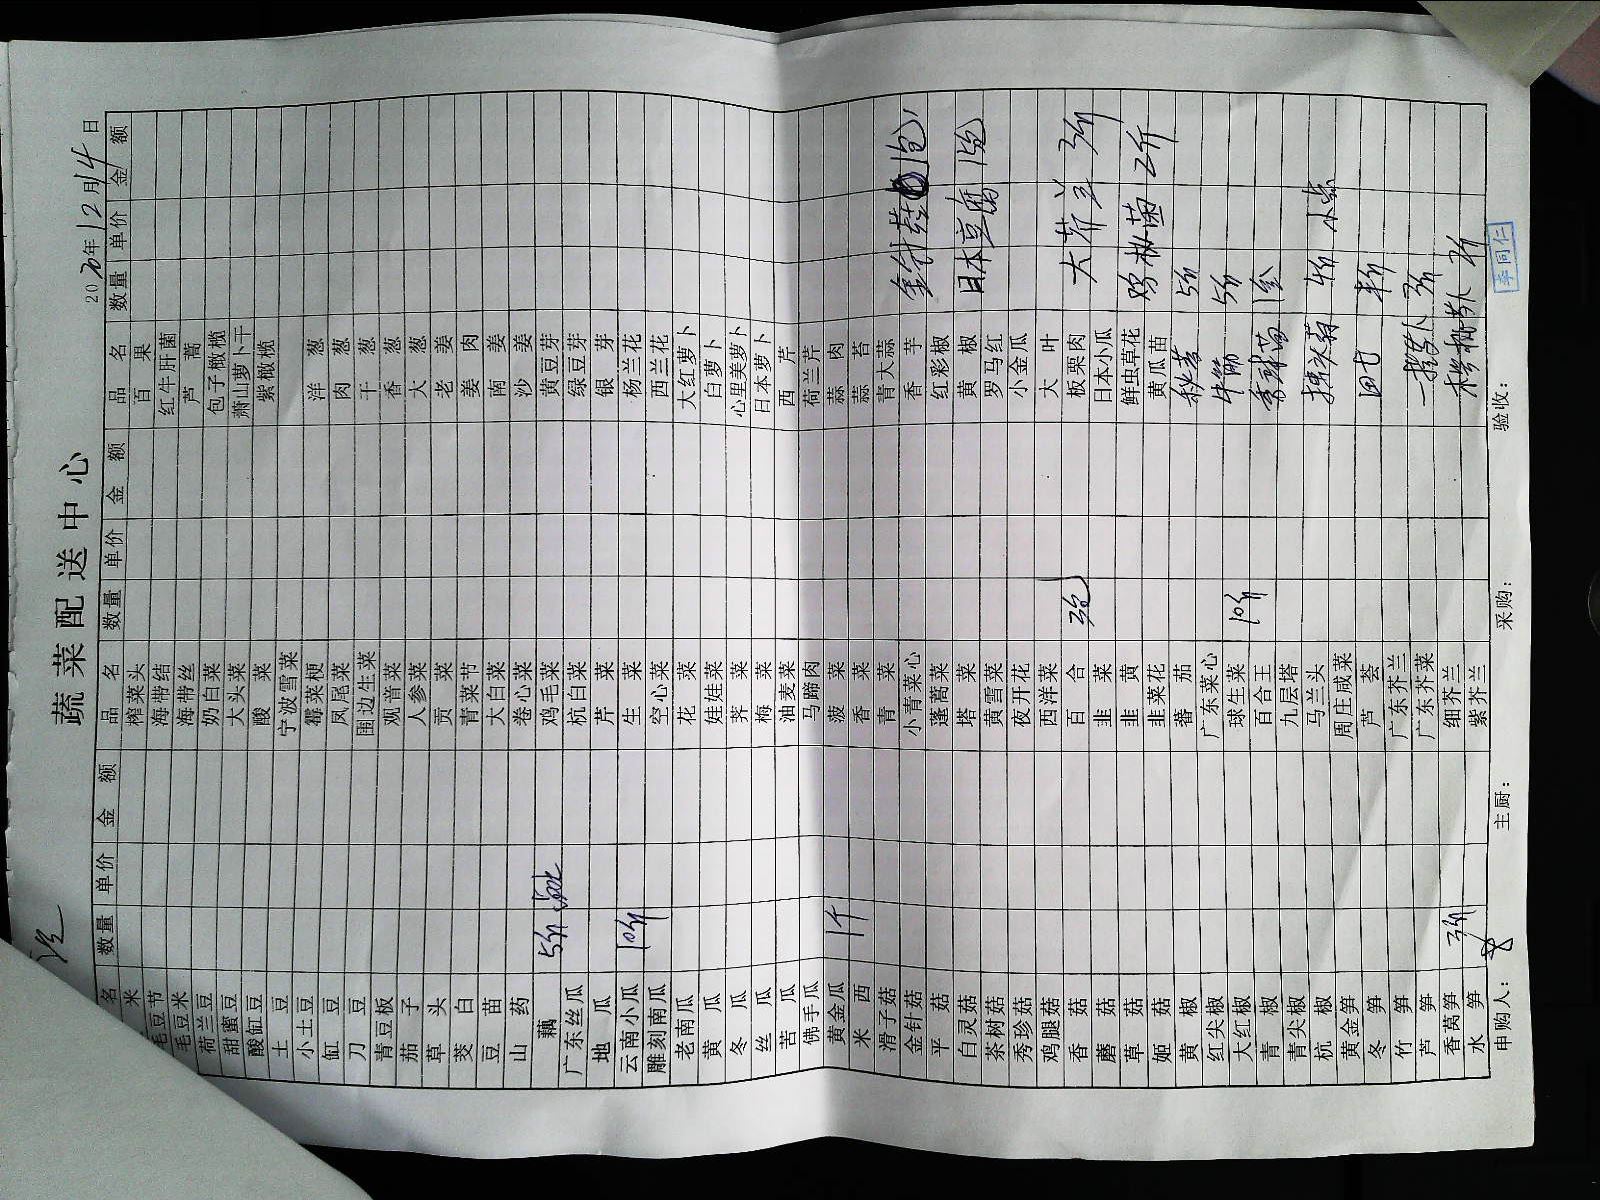 蔬菜配送中心
2020年12月14日
名 数量 单价 金额 品名 数量 单价 金额 品名 数量 单价 金额
米 榨菜头 百果
毛豆节 海带结 红牛肝菌
毛豆米 海带丝 芦蒿
荷兰豆 奶白菜 包子橄榄
甜蜜豆 大头菜 萧山萝卜干
酸缸豆 酸菜 紫橄榄
土豆 宁波雪菜
小土豆 霉菜梗 洋葱
缸豆 凤尾菜 肉葱
刀豆 围边生菜 干葱
青豆板 观音菜 香葱
茄子 人参菜 大葱
草头 贡菜 老姜
茭白 青菜节 姜肉
豆苗 大白菜 南姜
山药 卷心菜 沙姜
藕 5斤 鸡毛菜 黄豆芽
广东丝瓜 杭白菜 绿豆芽
地瓜 芹菜 银芽
云南小瓜 10斤 生菜 杨兰花
雕刻南瓜 空心菜 西兰花
老南瓜 花菜 大红萝卜
黄瓜 娃娃菜 白萝卜
冬瓜 荠菜 心里美萝卜
丝瓜 梅菜 日本萝卜
苦瓜 油麦菜 西芹
佛手瓜 马蹄肉 荷兰芹
黄金瓜 1斤 菠菜 蒜肉
米西 香菜 蒜苔
滑子菇 青菜 青大蒜
金针菇 小青菜心 香芋 金针菇 1包
平菇 蓬蒿菜 红彩椒
白灵菇 塔菜 黄椒 日本豆腐 1包
茶树菇 黄雪菜 罗马红
秀珍菇 夜开花 小金瓜
鸡腿菇 西洋菜 大叶
香菇 百合 3包 板栗肉 大芥兰 3斤
蘑菇 韭菜 日本小瓜
草菇 韭黄 鲜虫草花 鸡枞菌 2斤
姬菇 韭菜花 黄瓜苗
黄椒 蕃茄 秋葵 5斤
红尖椒 广东菜心 牛蒡 5斤
大红椒 球生菜 10斤
青椒 百合王
青尖椒 九层塔
杭椒 马兰头
黄金笋 周庄咸菜
冬笋 芦荟 田七
竹笋 广东芥兰
芦笋 广东芥菜
香莴笋 3斤 细芥兰
水笋 紫芥兰
申购人： 主厨： 采购： 验收： 李同仁